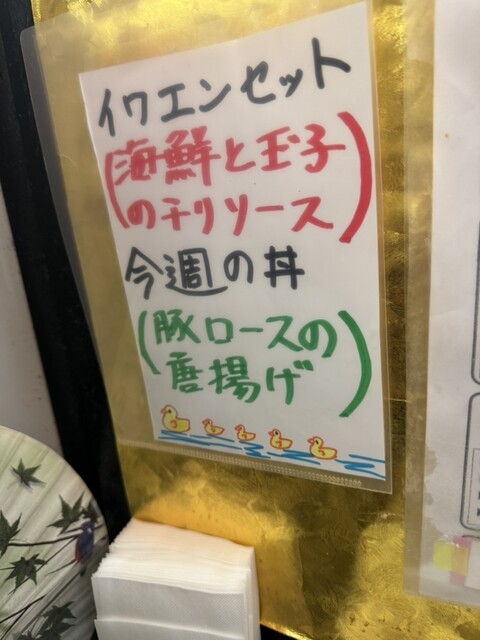 イワエンセット
(海鮮と玉子
のチリソース)
今週の丼
(豚ロースの
唐揚げ)